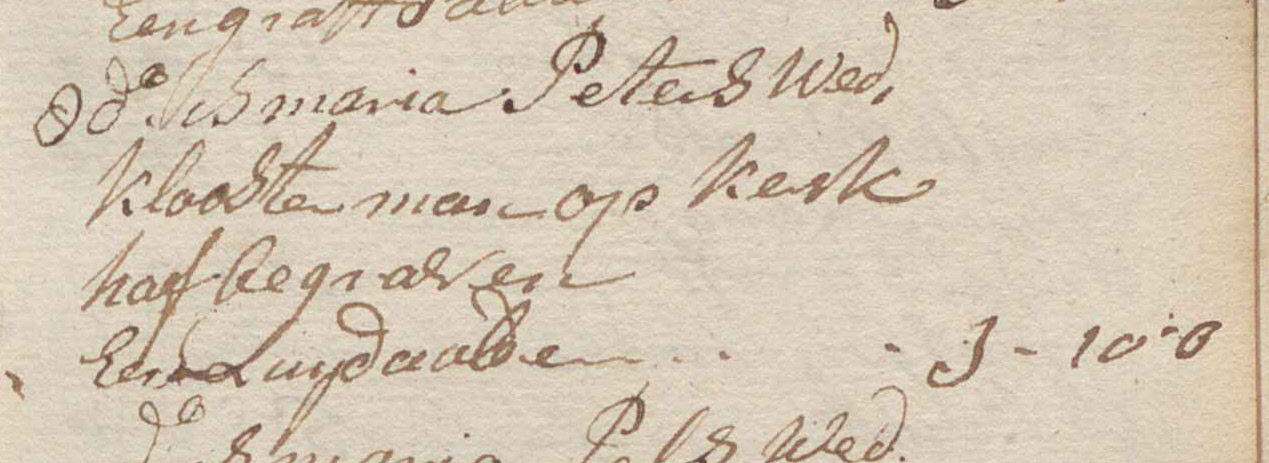 Een graft
do maria Peters Wed,
klooster man op kerk
hof begraven
Een Luydaalde . . - 3 - 10 - 0
do maria Pels Wed.